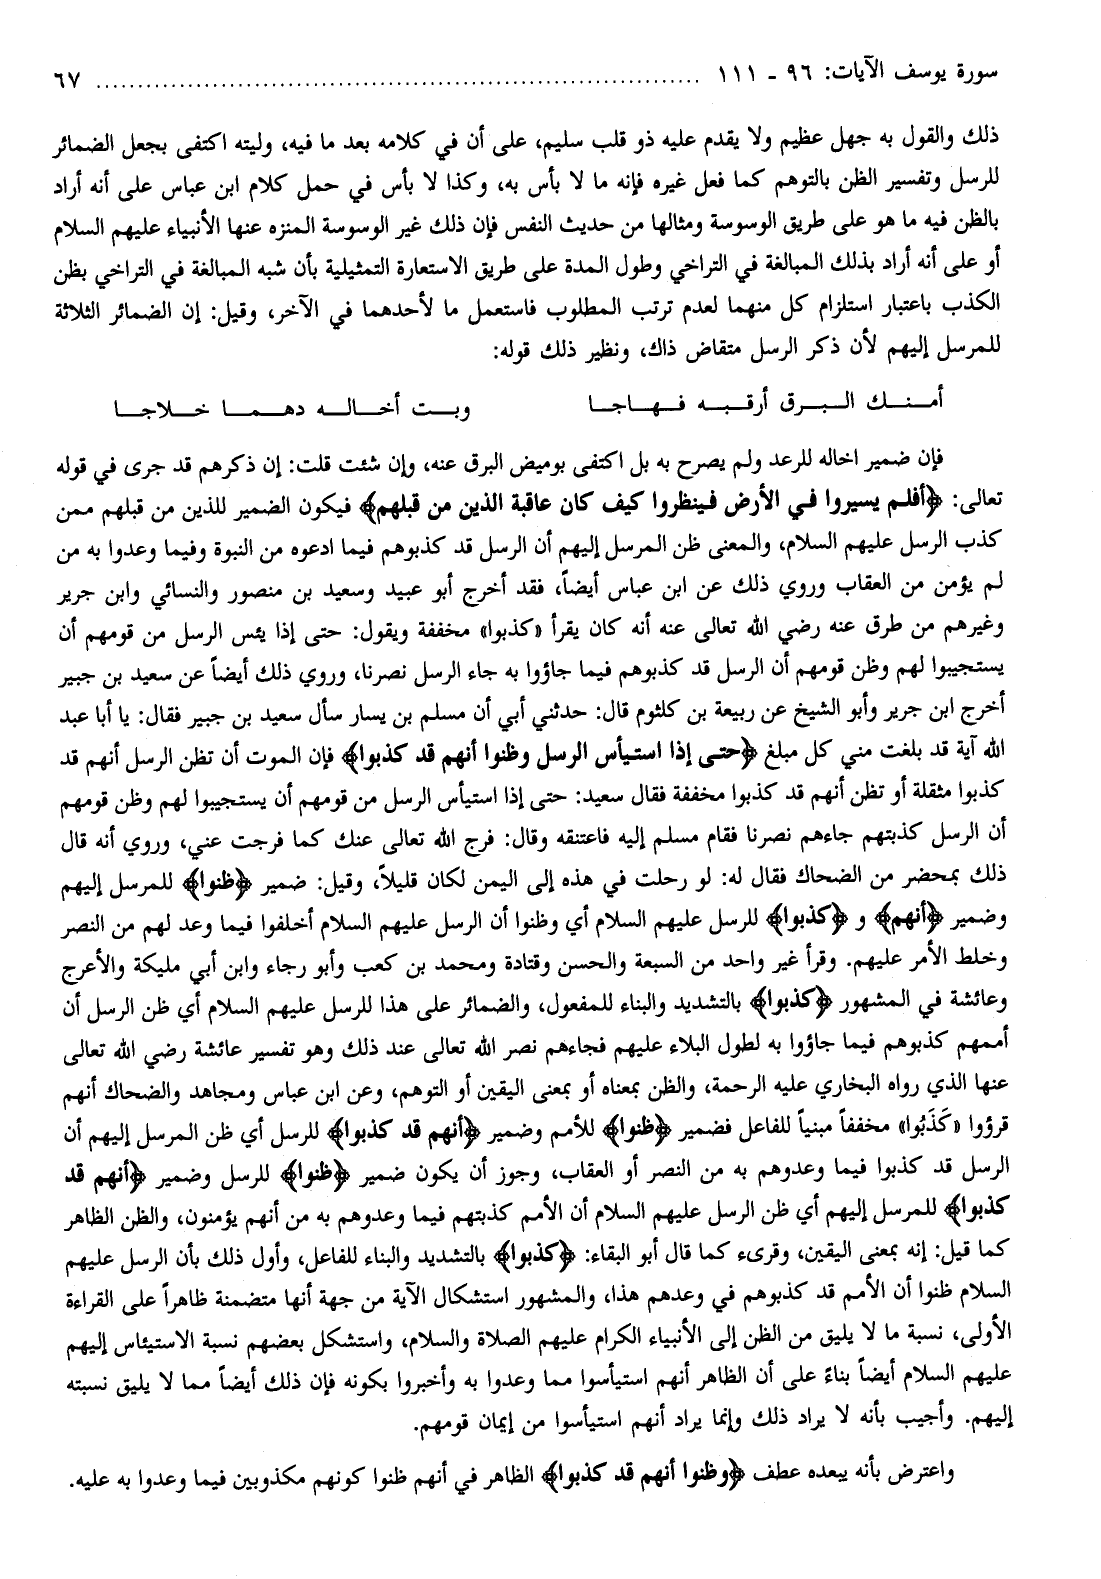 سورة يوسف الآيات: ٩٦ - ١١١ ........................................................................ ٦٧
ذلك والقول به جهل عظيم ولا يقدم عليه ذو قلب سليم، على أن في كلامه بعد ما فيه، وليته اكتفى بجعل الضمائر
للرسل وتفسير الظن بالتوهم كما فعل غيره فإنه ما لا بأس به، وكذا لا بأس في حمل كلام ابن عباس على أنه أراد
بالظن فيه ما هو على طريق الوسوسة ومثالها من حديث النفس فإن ذلك غير الوسوسة المنزه عنها الأنبياء عليهم السلام
أو على أنه أراد بذلك المبالغة في التراخي وطول المدة على طريق الاستعارة التمثيلية بأن شبه المبالغة في التراخي بظن
الكذب باعتبار استلزام كل منهما لعدم ترتب المطلوب فاستعمل ما لأحدهما في الآخر، وقيل: إن الضمائر الثلاثة
للمرسل إليهم لأن ذكر الرسل متقاض ذاك، ونظير ذلك قوله:
أمنك البرق أرقبه فهاجا وبت أخاله دهما خلاجا
فإن ضمير اخاله للرعد ولم يصرح به بل اكتفى بوميض البرق عنه، وإن شئت قلت: إن ذكرهم قد جرى في قوله
تعالى: ﴿أفلم يسيروا في الأرض فينظروا كيف كان عاقبة الذين من قبلهم﴾ فيكون الضمير للذين من قبلهم ممن
كذب الرسل عليهم السلام، والمعنى ظن المرسل إليهم أن الرسل قد كذبوهم فيما ادعوه من النبوة وفيما وعدوا به من
لم يؤمن من العقاب وروي ذلك عن ابن عباس أيضاً، فقد أخرج أبو عبيد وسعيد بن منصور والنسائي وابن جرير
وغيرهم من طرق عنه رضي الله تعالى عنه أنه كان يقرأ «كذبوا» مخففة ويقول: حتى إذا يئس الرسل من قومهم أن
يستجيبوا لهم وظن قومهم أن الرسل قد كذبوهم فيما جاؤوا به جاء الرسل نصرنا، وروي ذلك أيضاً عن سعيد بن جبير
أخرج ابن جرير وأبو الشيخ عن ربيعة بن كلثوم قال: حدثني أبي أن مسلم بن يسار سأل سعيد بن جبير فقال: يا أبا عبد
الله آية قد بلغت مني كل مبلغ ﴿حتى إذا استيأس الرسل وظنوا أنهم قد كذبوا﴾ فإن الموت أن تظن الرسل أنهم قد
كذبوا مثقلة أو تظن أنهم قد كذبوا مخففة فقال سعيد: حتى إذا استيأس الرسل من قومهم أن يستجيبوا لهم وظن قومهم
أن الرسل كذبتهم جاءهم نصرنا فقام مسلم إليه فاعتنقه وقال: فرج الله تعالى عنك كما فرجت عني، وروي أنه قال
ذلك بمحضر من الضحاك فقال له: لو رحلت في هذه إلى اليمن لكان قليلاً، وقيل: ضمير ﴿ظنوا﴾ للمرسل إليهم
وضمير ﴿أنهم﴾ و ﴿كذبوا﴾ للرسل عليهم السلام أي وظنوا أن الرسل عليهم السلام أخلفوا فيما وعد لهم من النصر
وخلط الأمر عليهم. وقرأ غير واحد من السبعة والحسن وقتادة ومحمد بن كعب وأبو رجاء وابن أبي مليكة والأعرج
وعائشة في المشهور ﴿كذبوا﴾ بالتشديد والبناء للمفعول، والضمائر على هذا للرسل عليهم السلام أي ظن الرسل أن
أممهم كذبوهم فيما جاؤوا به لطول البلاء عليهم فجاءهم نصر الله تعالى عند ذلك وهو تفسير عائشة رضي الله تعالى
عنها الذي رواه البخاري عليه الرحمة، والظن بمعناه أو بمعنى اليقين أو التوهم، وعن ابن عباس ومجاهد والضحاك أنهم
قرؤوا «كَذَبُوا» مخففاً مبنياً للفاعل فضمير ﴿ظنوا﴾ للأمم وضمير ﴿أنهم قد كذبوا﴾ للرسل أي ظن المرسل إليهم أن
الرسل قد كذبوا فيما وعدوهم به من النصر أو العقاب، وجوز أن يكون ضمير ﴿ظنوا﴾ للرسل وضمير ﴿أنهم قد
كذبوا﴾ للمرسل إليهم أي ظن الرسل عليهم السلام أن الأمم كذبتهم فيما وعدوهم به من أنهم يؤمنون، والظن الظاهر
كما قيل: إنه بمعنى اليقين، وقرىء كما قال أبو البقاء: ﴿كذبوا﴾ بالتشديد والبناء للفاعل، وأول ذلك بأن الرسل عليهم
السلام ظنوا أن الأمم قد كذبوهم في وعدهم هذا، والمشهور استشكال الآية من جهة أنها متضمنة ظاهراً على القراءة
الأولى، نسبة ما لا يليق من الظن إلى الأنبياء الكرام عليهم الصلاة والسلام، واستشكل بعضهم نسبة الاستيئاس إليهم
عليهم السلام أيضاً بناءً على أن الظاهر أنهم استيأسوا مما وعدوا به وأخبروا بكونه فإن ذلك أيضاً مما لا يليق نسبته
إليهم. وأجيب بأنه لا يراد ذلك وإنما يراد أنهم استيأسوا من إيمان قومهم.
واعترض بأنه يبعده عطف ﴿وظنوا أنهم قد كذبوا﴾ الظاهر في أنهم ظنوا كونهم مكذوبين فيما وعدوا به عليه.